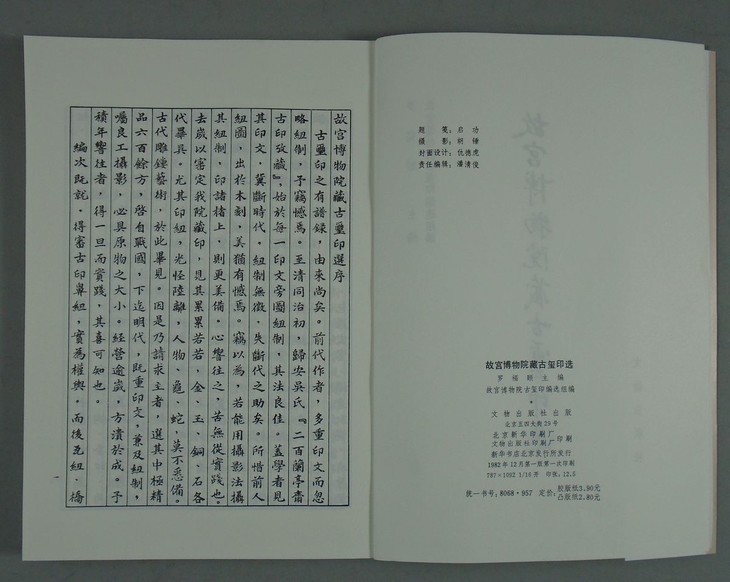 故宫博物院藏古玺印选
题　笺：启　功
摄　影：胡　锤
封面设计：仇德虎
责任编辑：潘清俊
故宫博物院藏古玺印选
罗福颐主编
故宫博物院古玺印编选组编
文物出版社出版
北京五四大街29号
北京新华印刷厂
文物出版社印刷厂印刷
新华书店北京发行所发行
1982年12月第一版第一次印刷
787×1092 1/16开 印张：12.5
统一书号：8068·957 定价：胶版纸3.90元 凸版纸2.80元
故宫博物院藏古璽印選序
古璽印之有譜録，由來尚矣。前代作者，多重印文而忽
略紐制，予竊憾焉。至清同治初，歸安吴氏『二百蘭亭齋
古印攷藏』，始於每一印文旁圖紐制，其法良佳。蓋學者見
其印文，冀斷時代，紐制無徵，失斷代之助矣。所惜前人
紐圖，出於木刻，美猶有憾焉。竊以為，若能用攝影法攝
其紐制，印諸楮上，則更美備。心嚮往之，苦無從實踐也。
去歲以審定我院藏印，見其累累若若，金、玉、銅、石各
代畢具。尤其印紐，光怪陸離，人物、龜、蛇，莫不悉備。
古代雕鍾藝術，於此畢見。因是乃請求主者，選其中極精
品六百餘方，啓自戰國，下迄明代，既重印文，兼及紐制，
囑良工攝影，必具原物之大小。經營逾歲，方潰於成。予
積年嚮往者，得一旦而實踐，其喜可知也。
編次既就，得審古印鼻紐，實為權輿。而後瓦紐、橋
一